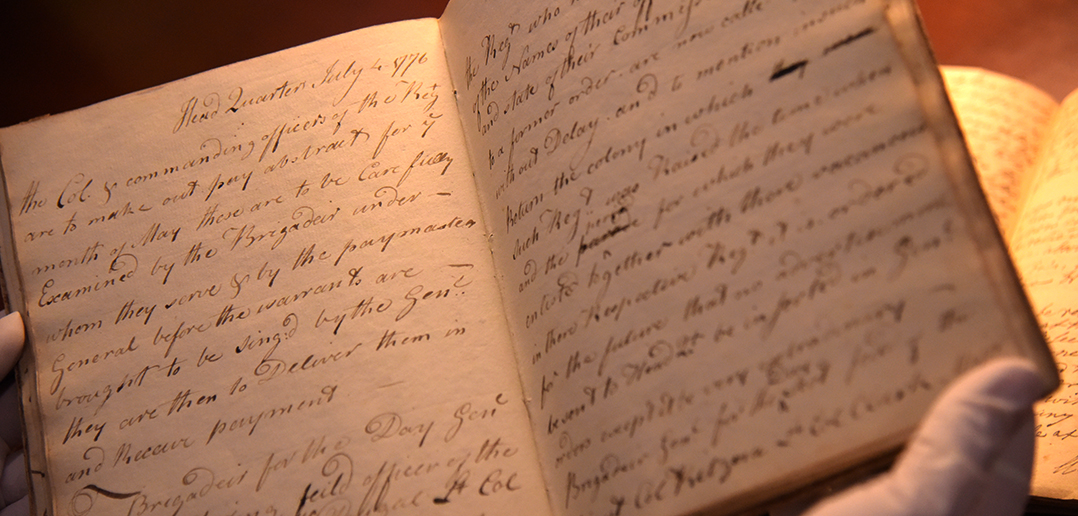 Head Quarters July 4 1776
the Col. & commanding officers of the Regt
are to make out pay abstract for ye
month of May these are to be Carefully
Examined by the Brigadeir under—
whom they serve & by the paymaster
General before the warrants are —
brought to be sing'd by the Genl.
they are then to Deliver them in
and Receive payment —
Brigadeir for the Day Genl
feild officer of the
Lt Col
the Regt who
of the Names of their
and state of their Commiss
to a former order are now calle
without Delay and to mention
Return the colony in which they
such Regt was Raised the time when
and the period for which they were
enlisted together with there vacances
in there Respective Regt it is ordered
for the future that no
be sent to Head be
order except
Brigadeir Genl for the Day
Lt Col